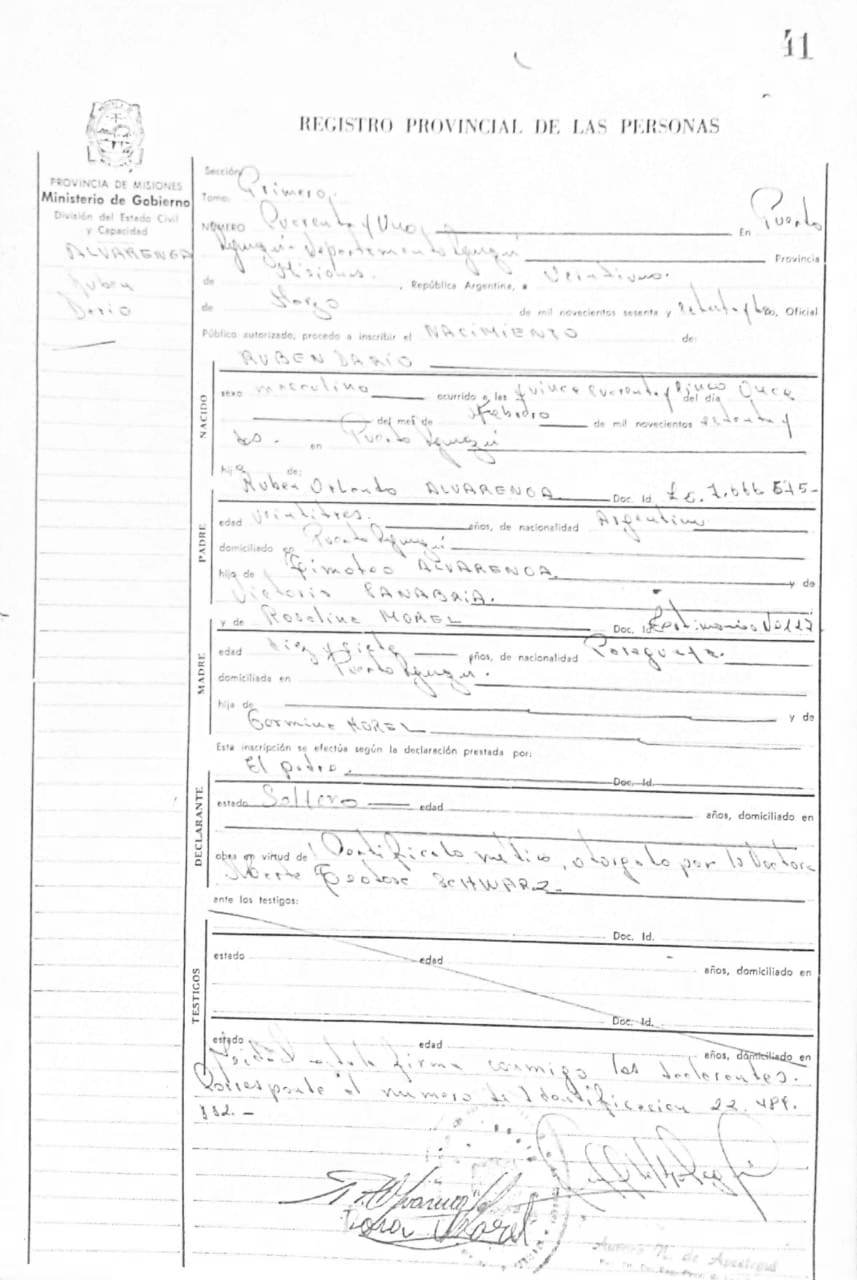 41
REGISTRO PROVINCIAL DE LAS PERSONAS
PROVINCIA DE MISIONES
Ministerio de Gobierno
División del Estado Civil
y Capacidad
ALVARENGA
Ruben
Dario
Sección
Tomo: Primero.
NÚMERO Cuarenta y Uno En Puerto
Iguazú - Departamento Iguazú Provincia
de Misiones. , República Argentina, a Veintiuno.
de Marzo de mil novecientos sesenta y , Oficial
Público autorizado, procedo a inscribir el NACIMIENTO de:
RUBEN DARIO
NACIDO
sexo masculino ocurrido a las quince cuarenta y cinco del día Once
del mes de Febrero de mil novecientos setenta y
dos. en Puerto Iguazú
hijo de:
Ruben Orlando ALVARENGA Doc. Id.
PADRE
edad Veintitres. años, de nacionalidad Argentino
domiciliado en Puerto Iguazú
hijo de Timoteo ALVARENGA y de
Victoria SANABRIA.
MADRE
y de Rosalina MOREL Doc. Id. Testimonio
edad Diez y siete años, de nacionalidad Paraguaya.
domiciliada en Puerto Iguazú.
hija de y de
Germina MOREL
Esta inscripción se efectúa según la declaración prestada por:
DECLARANTE
El padre. Doc. Id.
estado Soltero edad años, domiciliado en
obra en virtud de Certificado médico, otorgado por la Doctora
SCHWARZ.
ante los testigos:
TESTIGOS
Doc. Id.
estado edad años, domiciliado en
Doc. Id.
estado edad años, domiciliado en
Leida el acta firma conmigo los declarantes.
Corresponde el numero de Identificacion 22.499.
332.-
Morel
N. de